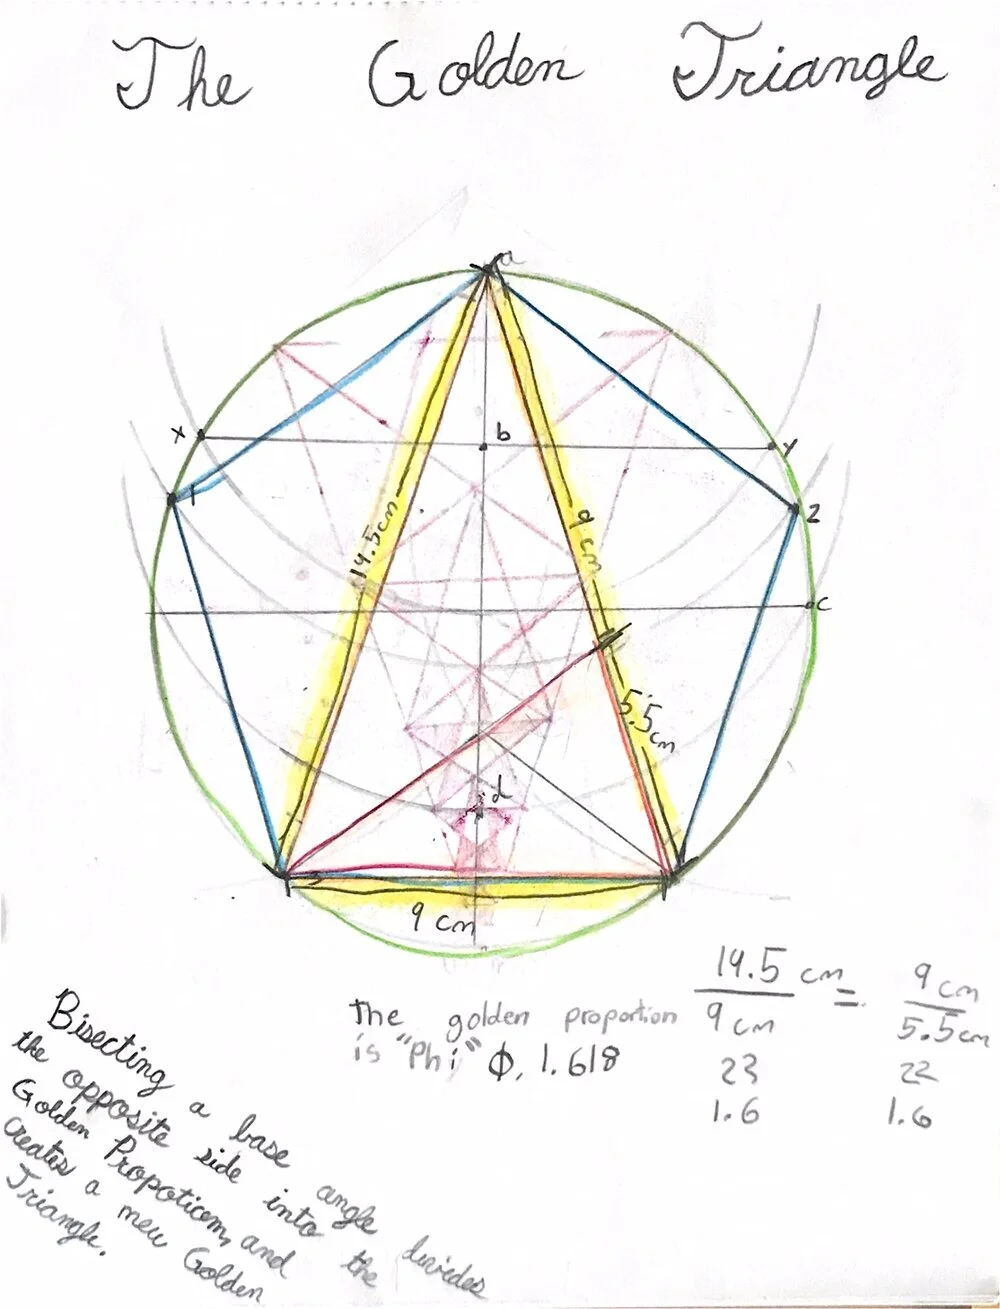 The Golden Triangle
a
x
b
y
1
2
14.5cm
9 cm
c
5.5cm
d
9 cm
The golden proportion
is "Phi" ϕ, 1.618
14.5 cm = 9 cm
9 cm 5.5cm
23 22
1.6 1.6
Bisecting a base angle divides
the opposite side into the
Golden Propoticom, and
creates a new Golden
Triangle.